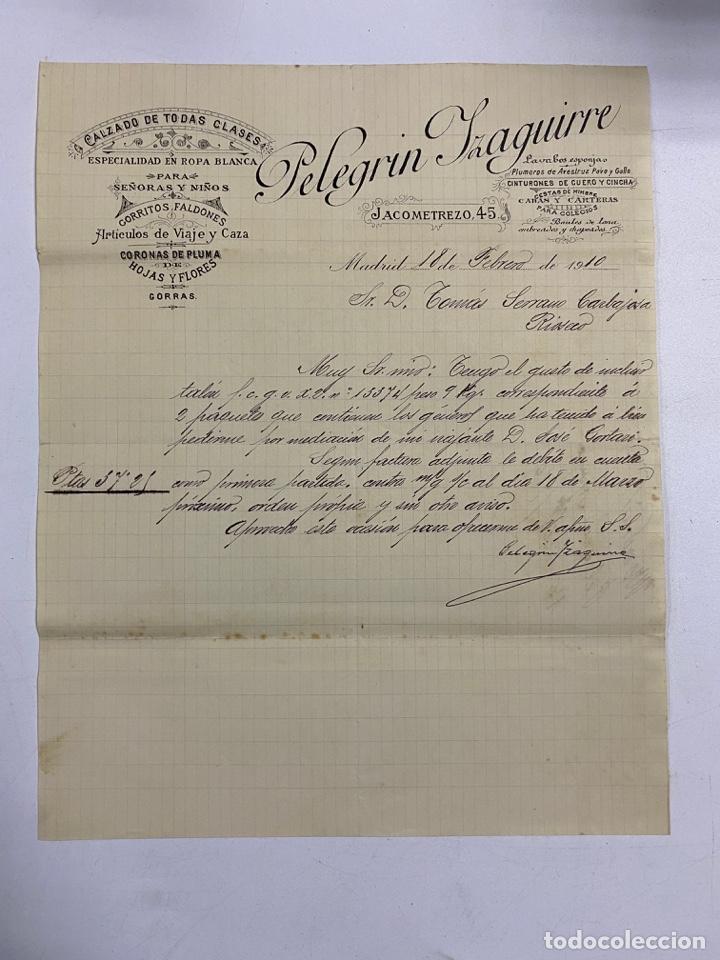 CALZADO DE TODAS CLASES
ESPECIALIDAD EN ROPA BLANCA
PARA
SEÑORAS Y NIÑOS
GORRITOS, FALDONES
Artículos de Viaje y Caza
CORONAS DE PLUMA
DE
HOJAS Y FLORES
GORRAS.
Pelegrin Yzaguirre
JACOMETREZO, 45.
Lavabos esponjas
Plumeros de Avestruz Pavo y Gallo
CINTURONES DE CUERO Y CINCHA
CESTAS DE MIMBRE
CABAS Y CARTERAS
PARA COLEGIOS
Baules de lona
Madrid 18 de Febrero de 1910
Sr. D. Tomás Serrano Carbajosa
Rioseco
Muy Sr. mio: Tengo el gusto de incluir
talón f. c. g. v. nº 15374 peso 9 Kgs. correspondiente á
2 paquetes que contienen los géneros que ha tenido á bien
pedirme por mediación de mi viajante D. José
Según factura adjunta le debito en cuenta
Ptas 37'25
como primera partida, contra m/g s/c al dia 18 de Marzo
próximo, orden propia y sin otro aviso.
Aprovecho ésta ocasión para ofrecerme de V. afmo. S. S.
Pelegrin Yzaguirre
todocoleccion
todocoleccion.net